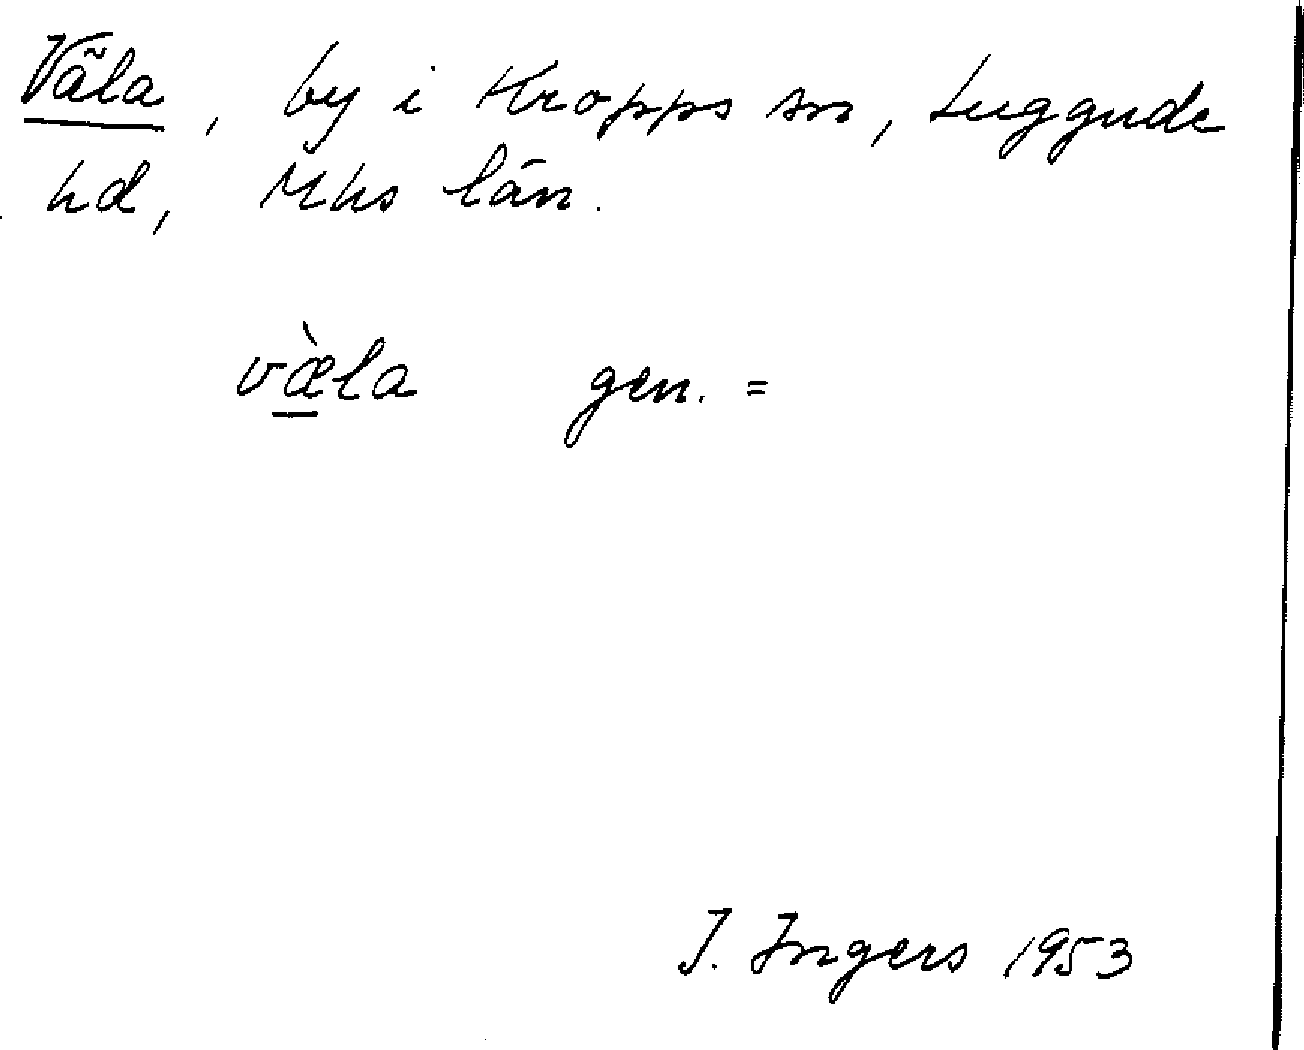 Väla, by i Kropps sn, Luggude
hd, Mhs län.
væ̀la gen. =
I. Ingers 1953